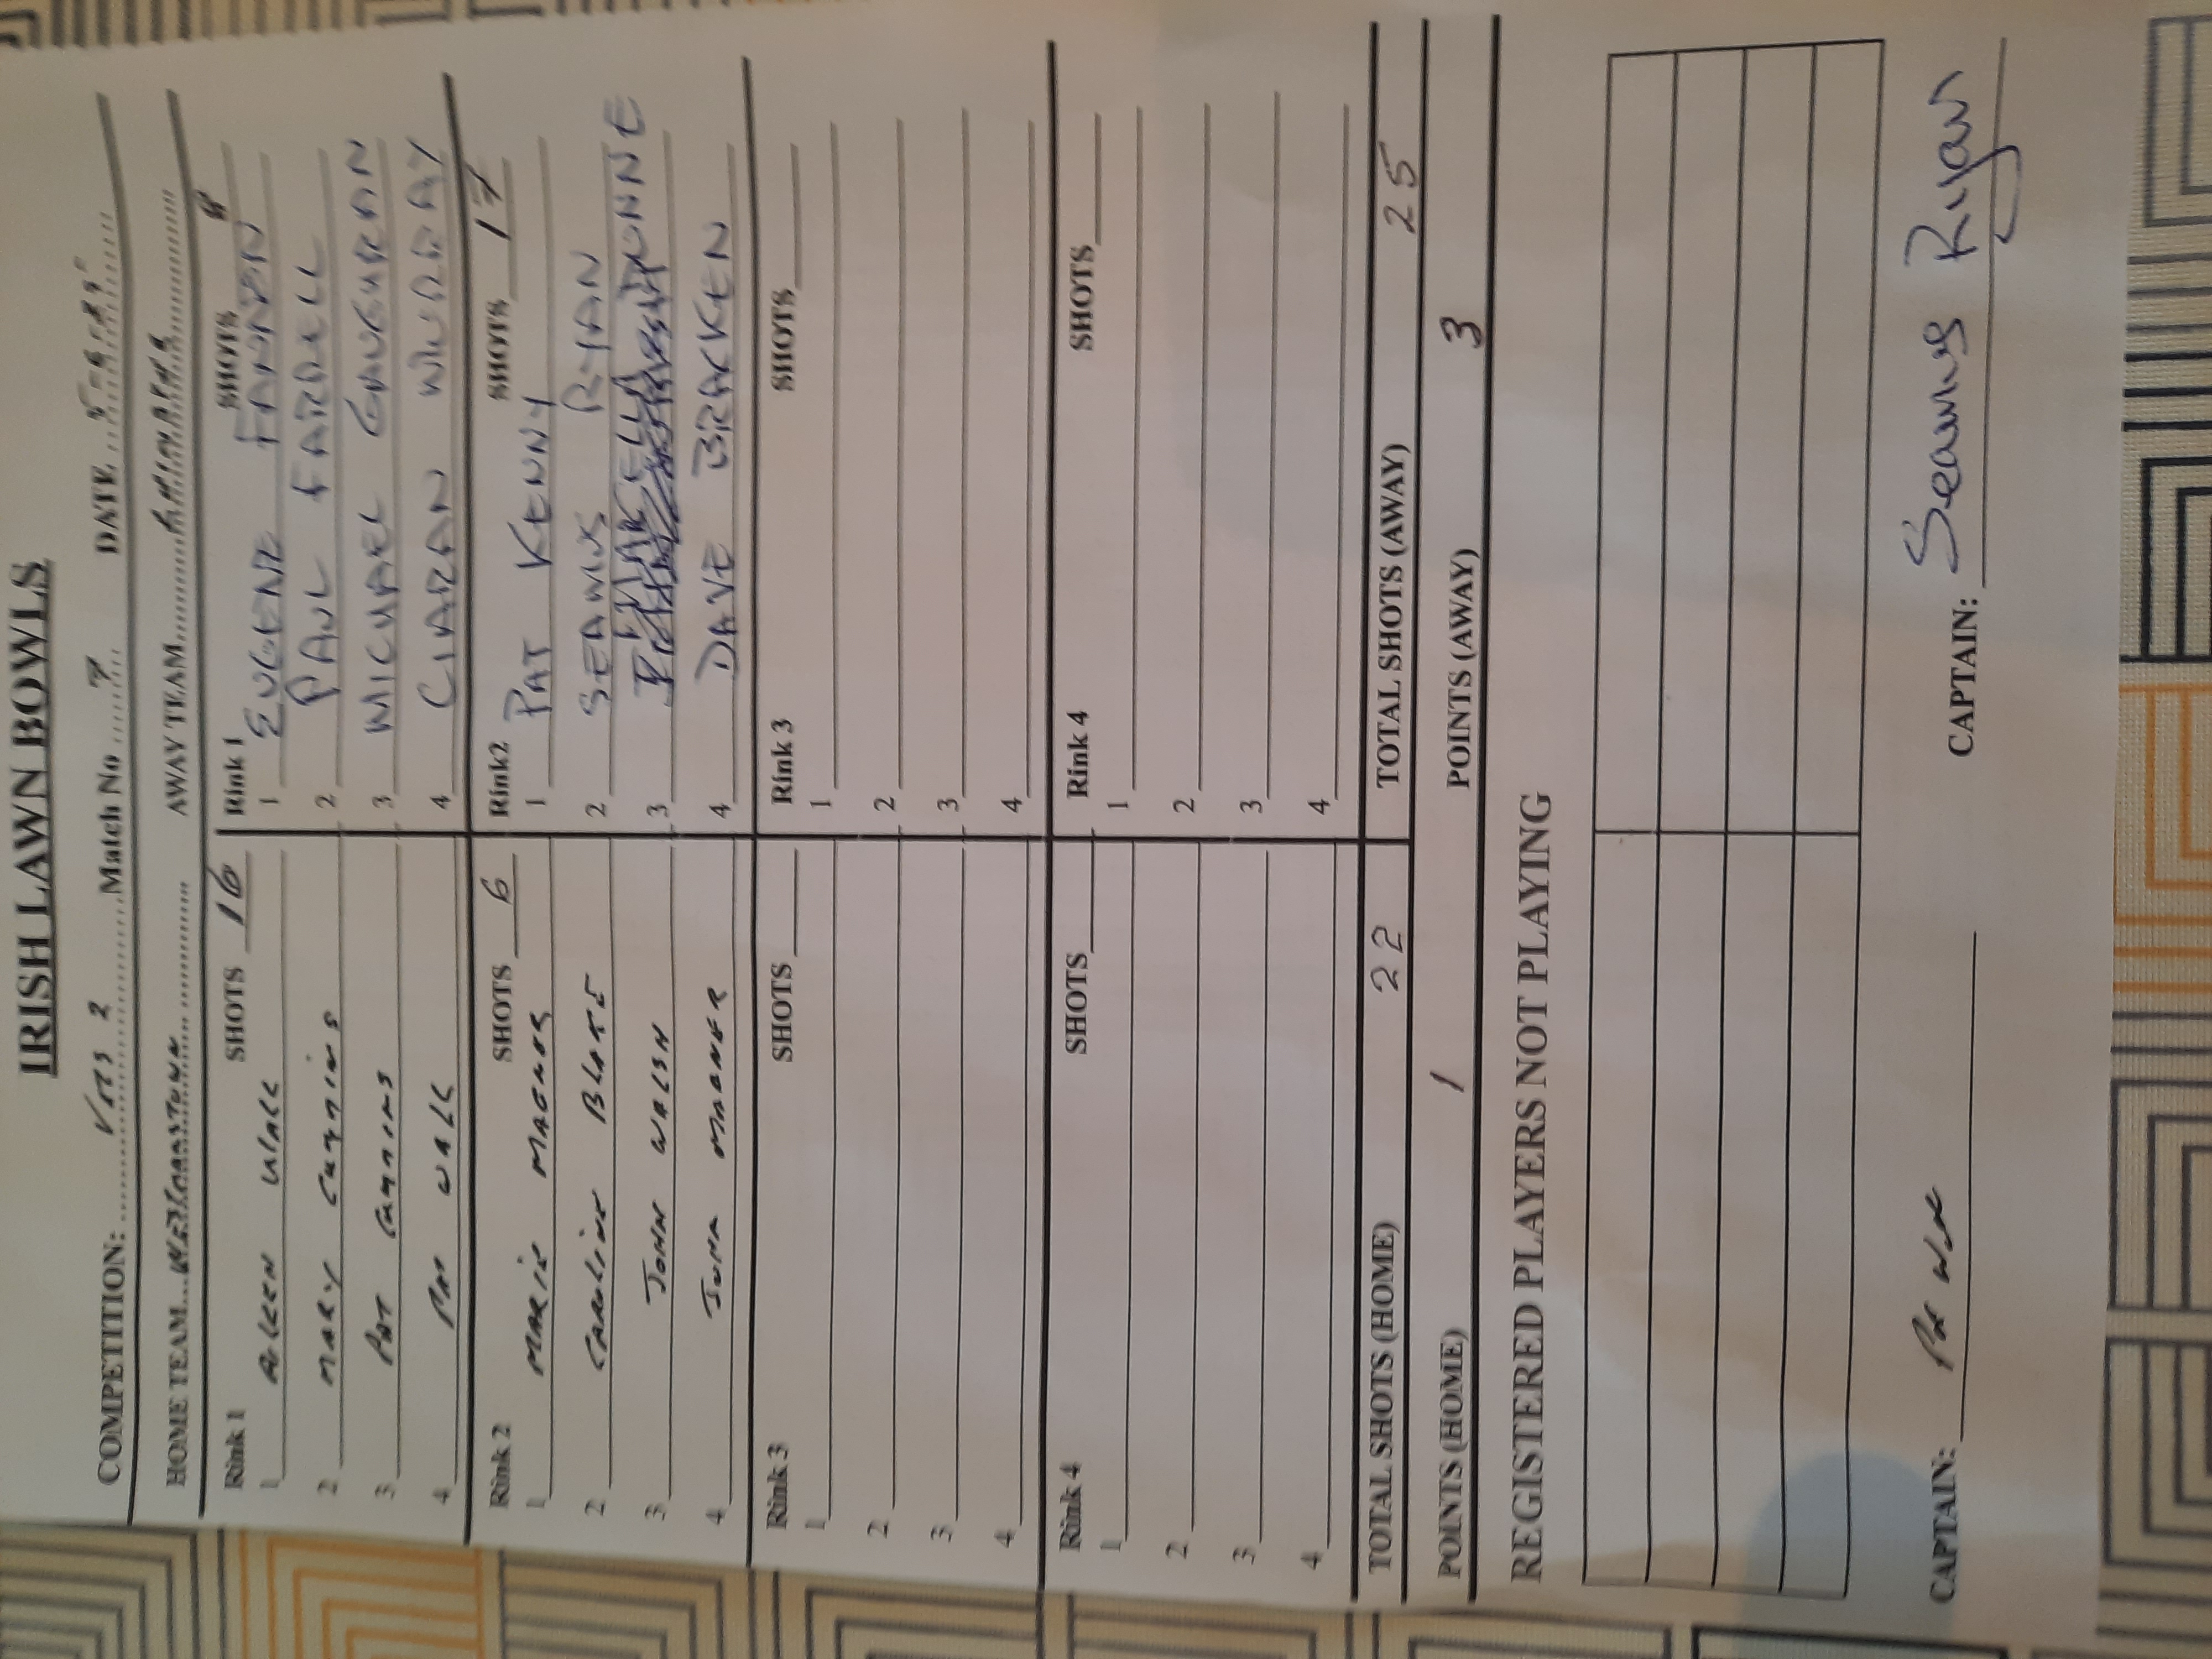 IRISH LAWN BOWLS
COMPETITION: VETS 2 Match No 7 DATE
HOME TEAM AWAY TEAM
Rink 1 SHOTS 16 Rink 1 SHOTS 8
1 AILEEN WALL 1 EUGENE FANNON
2 MARY CUMMINS 2 PAUL FARRELL
3 PAT CUMMINS 3 MICHAEL GAUGHRAN
4 PAT WALL 4 CIARAN MURRAY
Rink 2 SHOTS 6 Rink2 SHOTS 17
1 MARIE MAGNER 1 PAT KENNY
2 CAROLINE BLAKE 2 SEAMUS RYAN
3 JOHN WALSH 3 MARCELLA DUNNE
4 JOHN MAGNER 4 DAVE BRACKEN
Rink 3 SHOTS Rink 3 SHOTS
1 1
2 2
3 3
4 4
Rink 4 SHOTS Rink 4 SHOTS
1 1
2 2
3 3
4 4
TOTAL SHOTS (HOME) 22 TOTAL SHOTS (AWAY) 25
POINTS (HOME) 1 POINTS (AWAY) 3
REGISTERED PLAYERS NOT PLAYING
CAPTAIN: Pat Wall CAPTAIN: Seamus Ryan